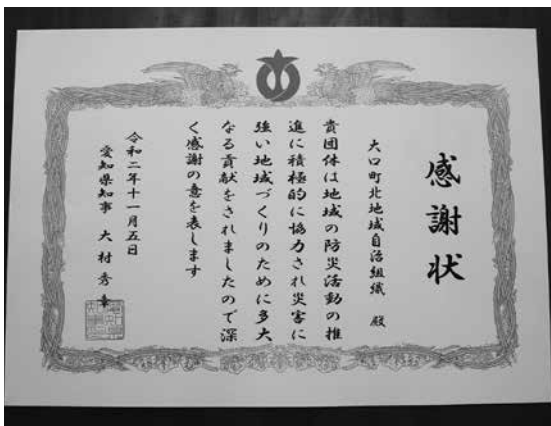 感謝状
大口町北地域自治組織 殿
貴団体は地域の防災活動の推
進に積極的に協力され災害に
強い地域づくりのために多大
なる貢献をされましたので深
く感謝の意を表します
令和二年十一月五日
愛知県知事 大村秀章